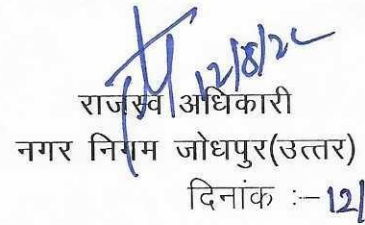 12/8/22
राजस्व अधिकारी
नगर निगम जोधपुर(उत्तर)
दिनांक :–12/